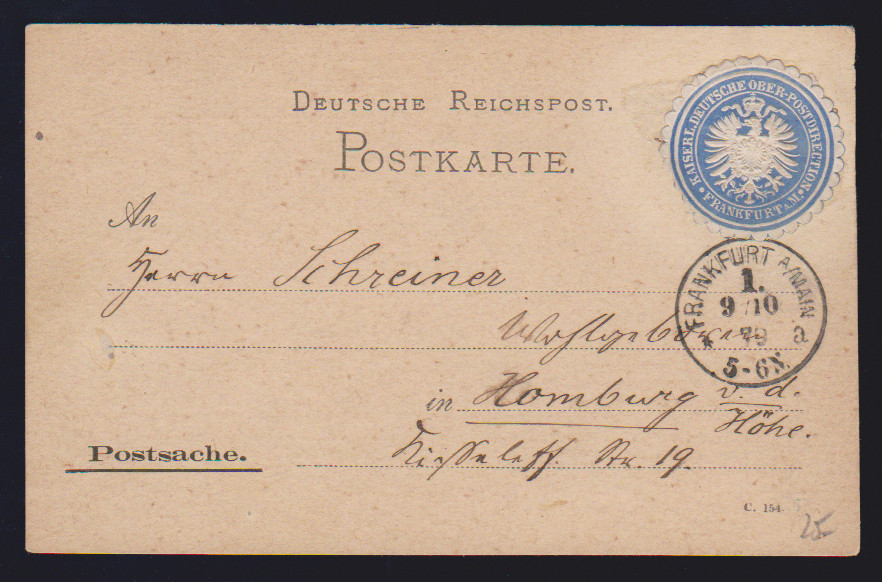 DEUTSCHE REICHSPOST.
POSTKARTE.
KAISERL. DEUTSCHE OBER-POSTDIRECTION
• FRANKFURT A.M. •
An
Herrn Schreiner
FRANKFURT A/MAIN
1.
9/10
79 a
5-6N.
Wohlgeboren
in Homburg v. d.
Höhe.
Postsache.
Kisseleff. Str. 19.
C. 154.
25